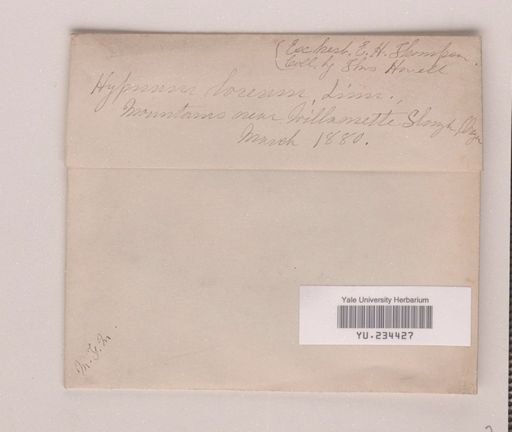 (Ex herb. E. H. Thompson.
Coll. by Thos Howell
Hypnum loreum, Linn.,
Mountains near Willamette Slough,
March 1880.
Yale University Herbarium
YU.234427